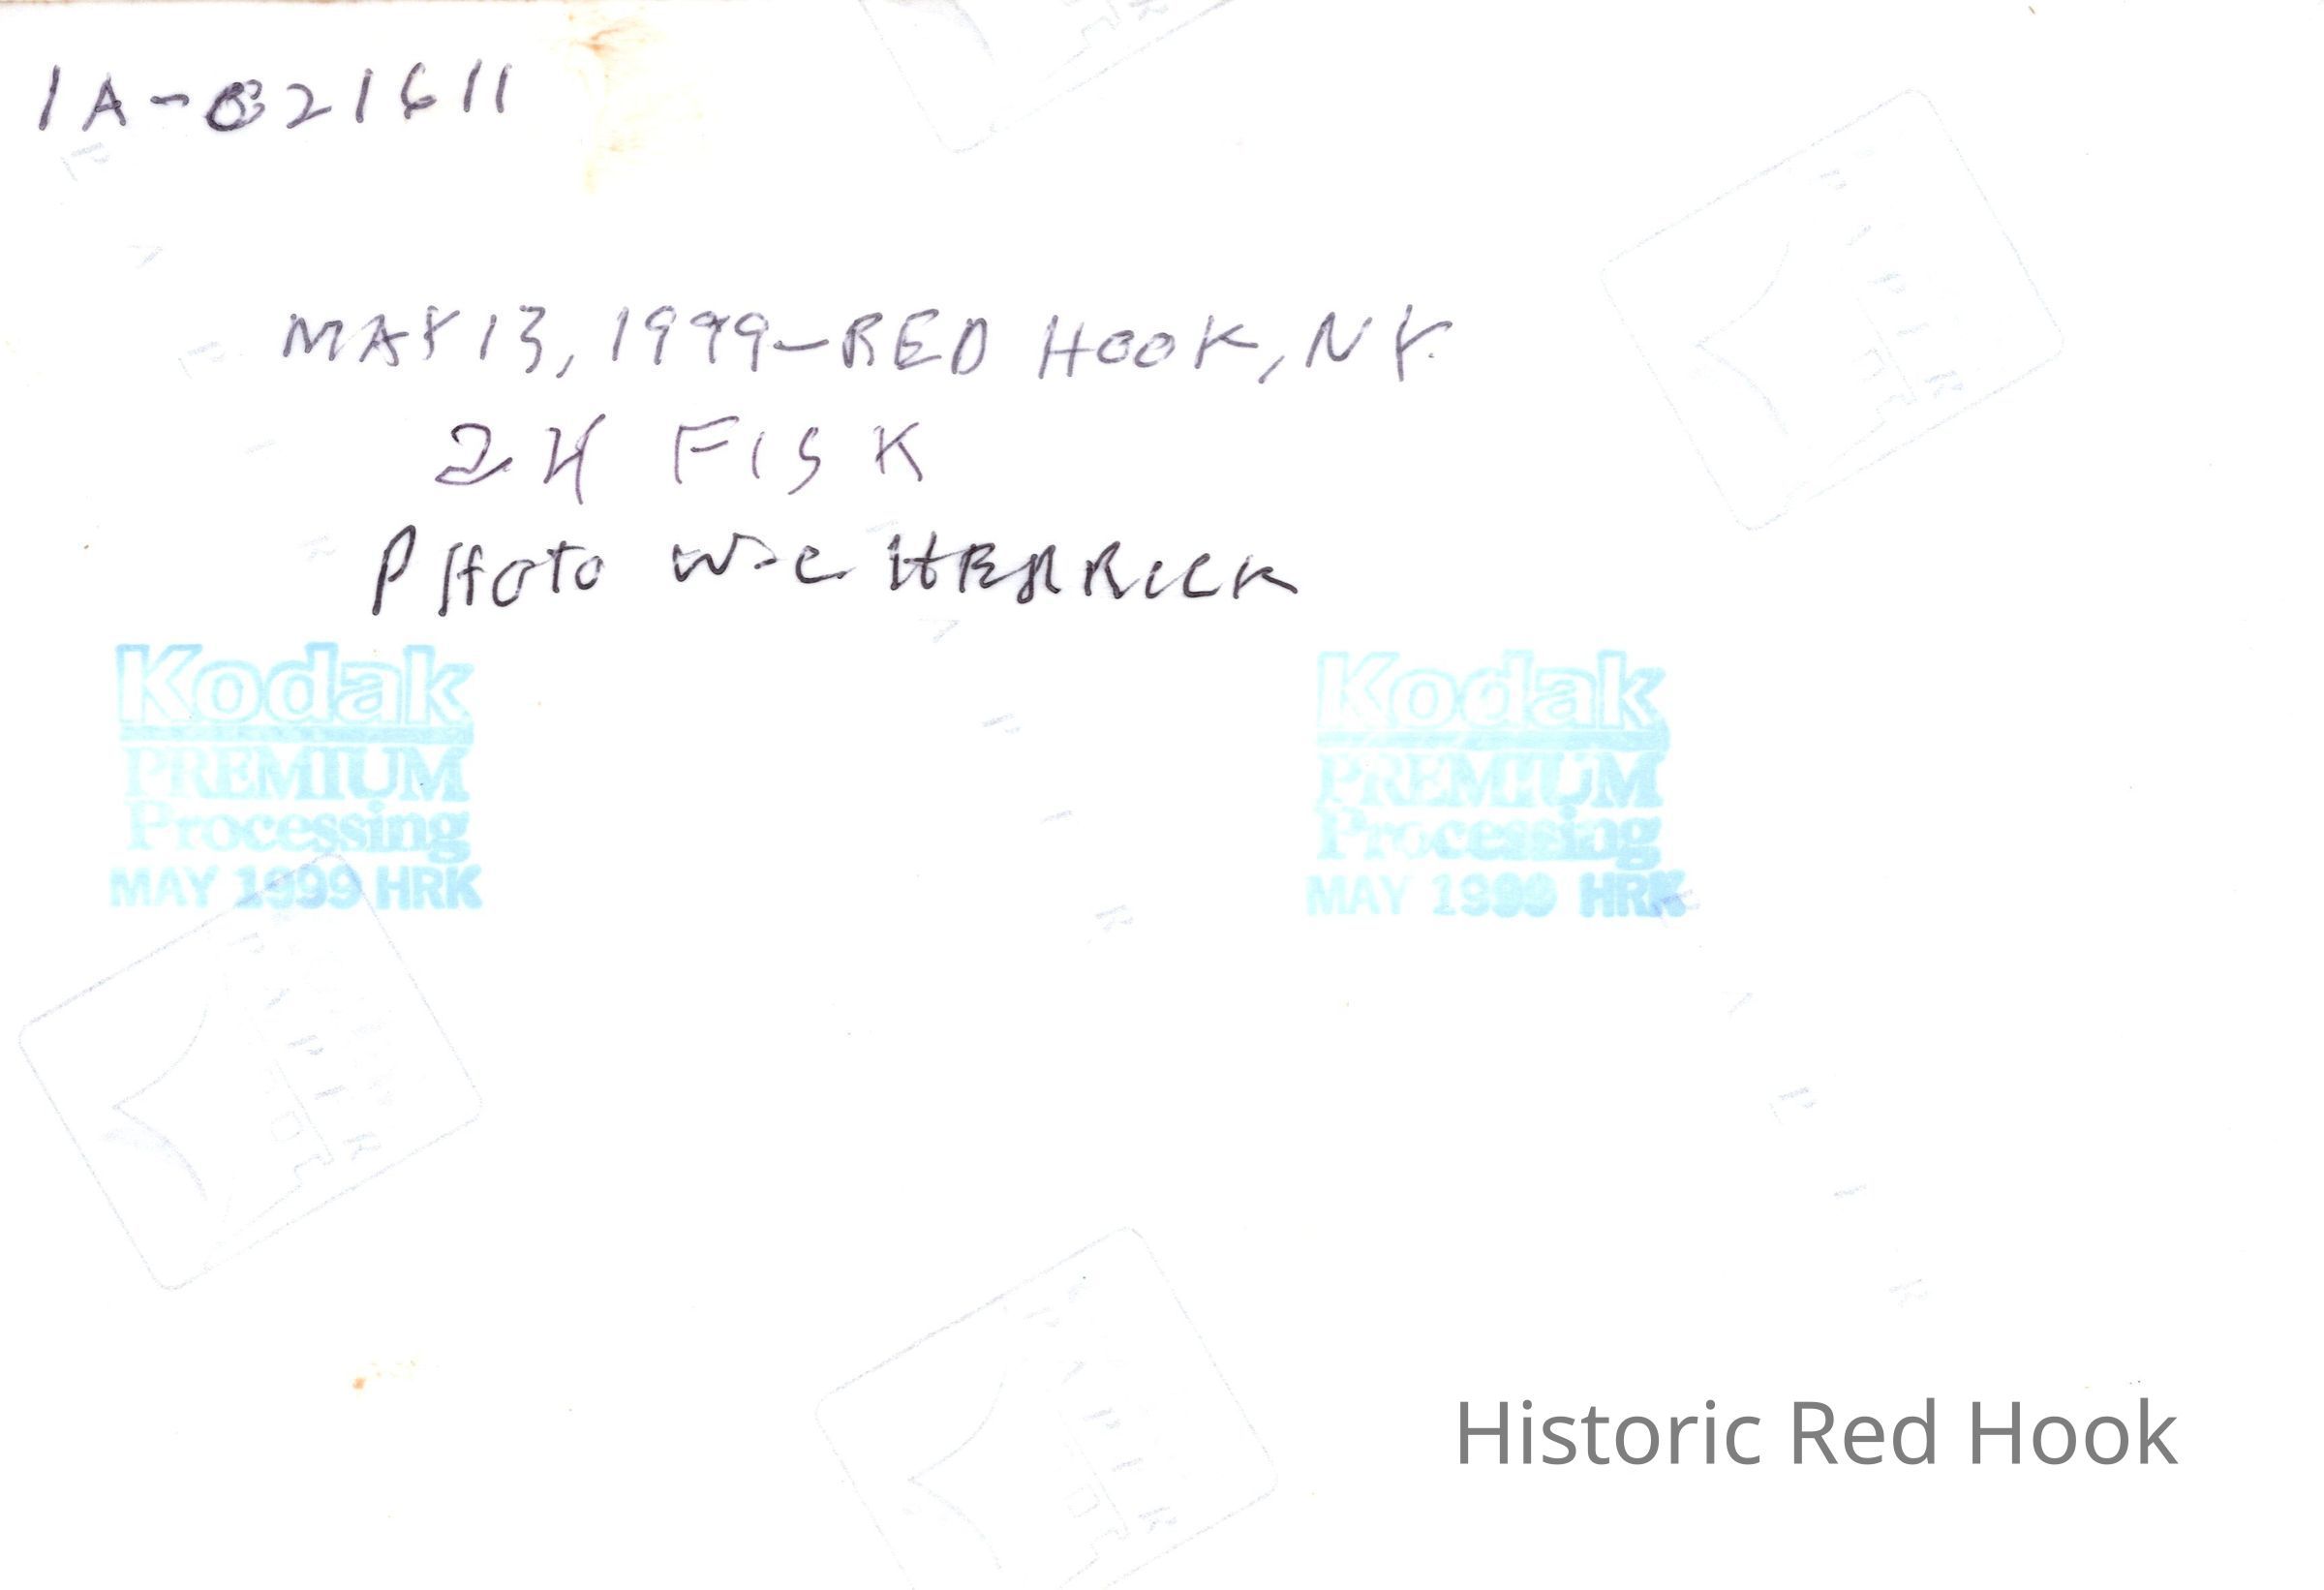 1A-021611
MAY 13, 1999-RED HOOK, NY.
24 FISK
PHOTO W-C. HERRICK
Kodak
PREMIUM
Processing
MAY 1999 HRK
Kodak
PREMIUM
Processing
MAY 1999 HRK
Historic Red Hook